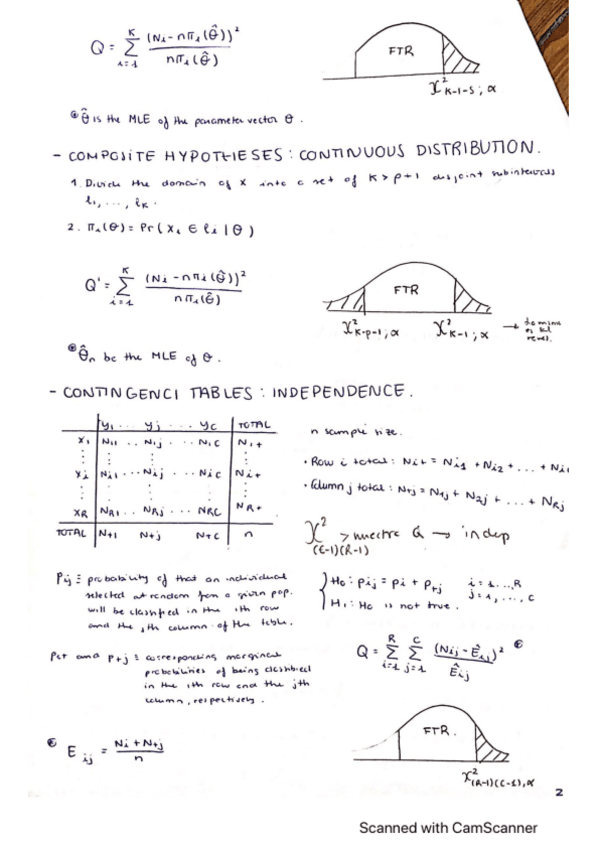 Q = Σ_{i=1}^{K} (Ni - nπi(θ̂))² / nπi(θ̂)
FTR
χ²_{K-1-S; α}
* θ̂ is the MLE of the parameter vector θ.
- COMPOSITE HYPOTHESES: CONTINUOUS DISTRIBUTION.
1. Divide the domain of x into a set of K > p+1 disjoint subintervals
l1, ..., lK.
2. πi(θ) = Pr(Xi ∈ li | θ)
Q' = Σ_{i=1}^{K} (Ni - nπi(θ̂))² / nπi(θ̂)
FTR
χ²_{K-p-1; α} χ²_{K-1; α} →
* θ̂n be the MLE of θ.
- CONTINGENCI TABLES: INDEPENDENCE.
y1 ... yj ... yc TOTAL
x1 N11 .. N1j ... N1C N1+
xi Ni1 ... Nij ... NiC Ni+
xR NR1 ... NRj ... NRC NR+
TOTAL N+1 N+j N+C n
n sample size.
• Row i total: Ni+ = Ni1 + Ni2 + ... + Ni
• Column j total: N+j = N1j + N2j + ... + NRj
χ²_{(C-1)(R-1)} > nuestra Q → indep
Pij ≡ probability of that an individual
selected at random from a given pop.
will be classified in the ith row
and the jth column of the table.
H0: pij = pi + p+j i = 1...,R
H1: H0 is not true. j = 1,...,C
Pi+ and P+j ≡ corresponding marginal
probabilities of being classified
in the ith row and the jth
column, respectively.
Q = Σ_{i=1}^{R} Σ_{j=1}^{C} (Nij - Êij)² / Êij
Eij = Ni+N+j / n
FTR.
χ²_{(R-1)(C-1), α}
2
Scanned with CamScanner